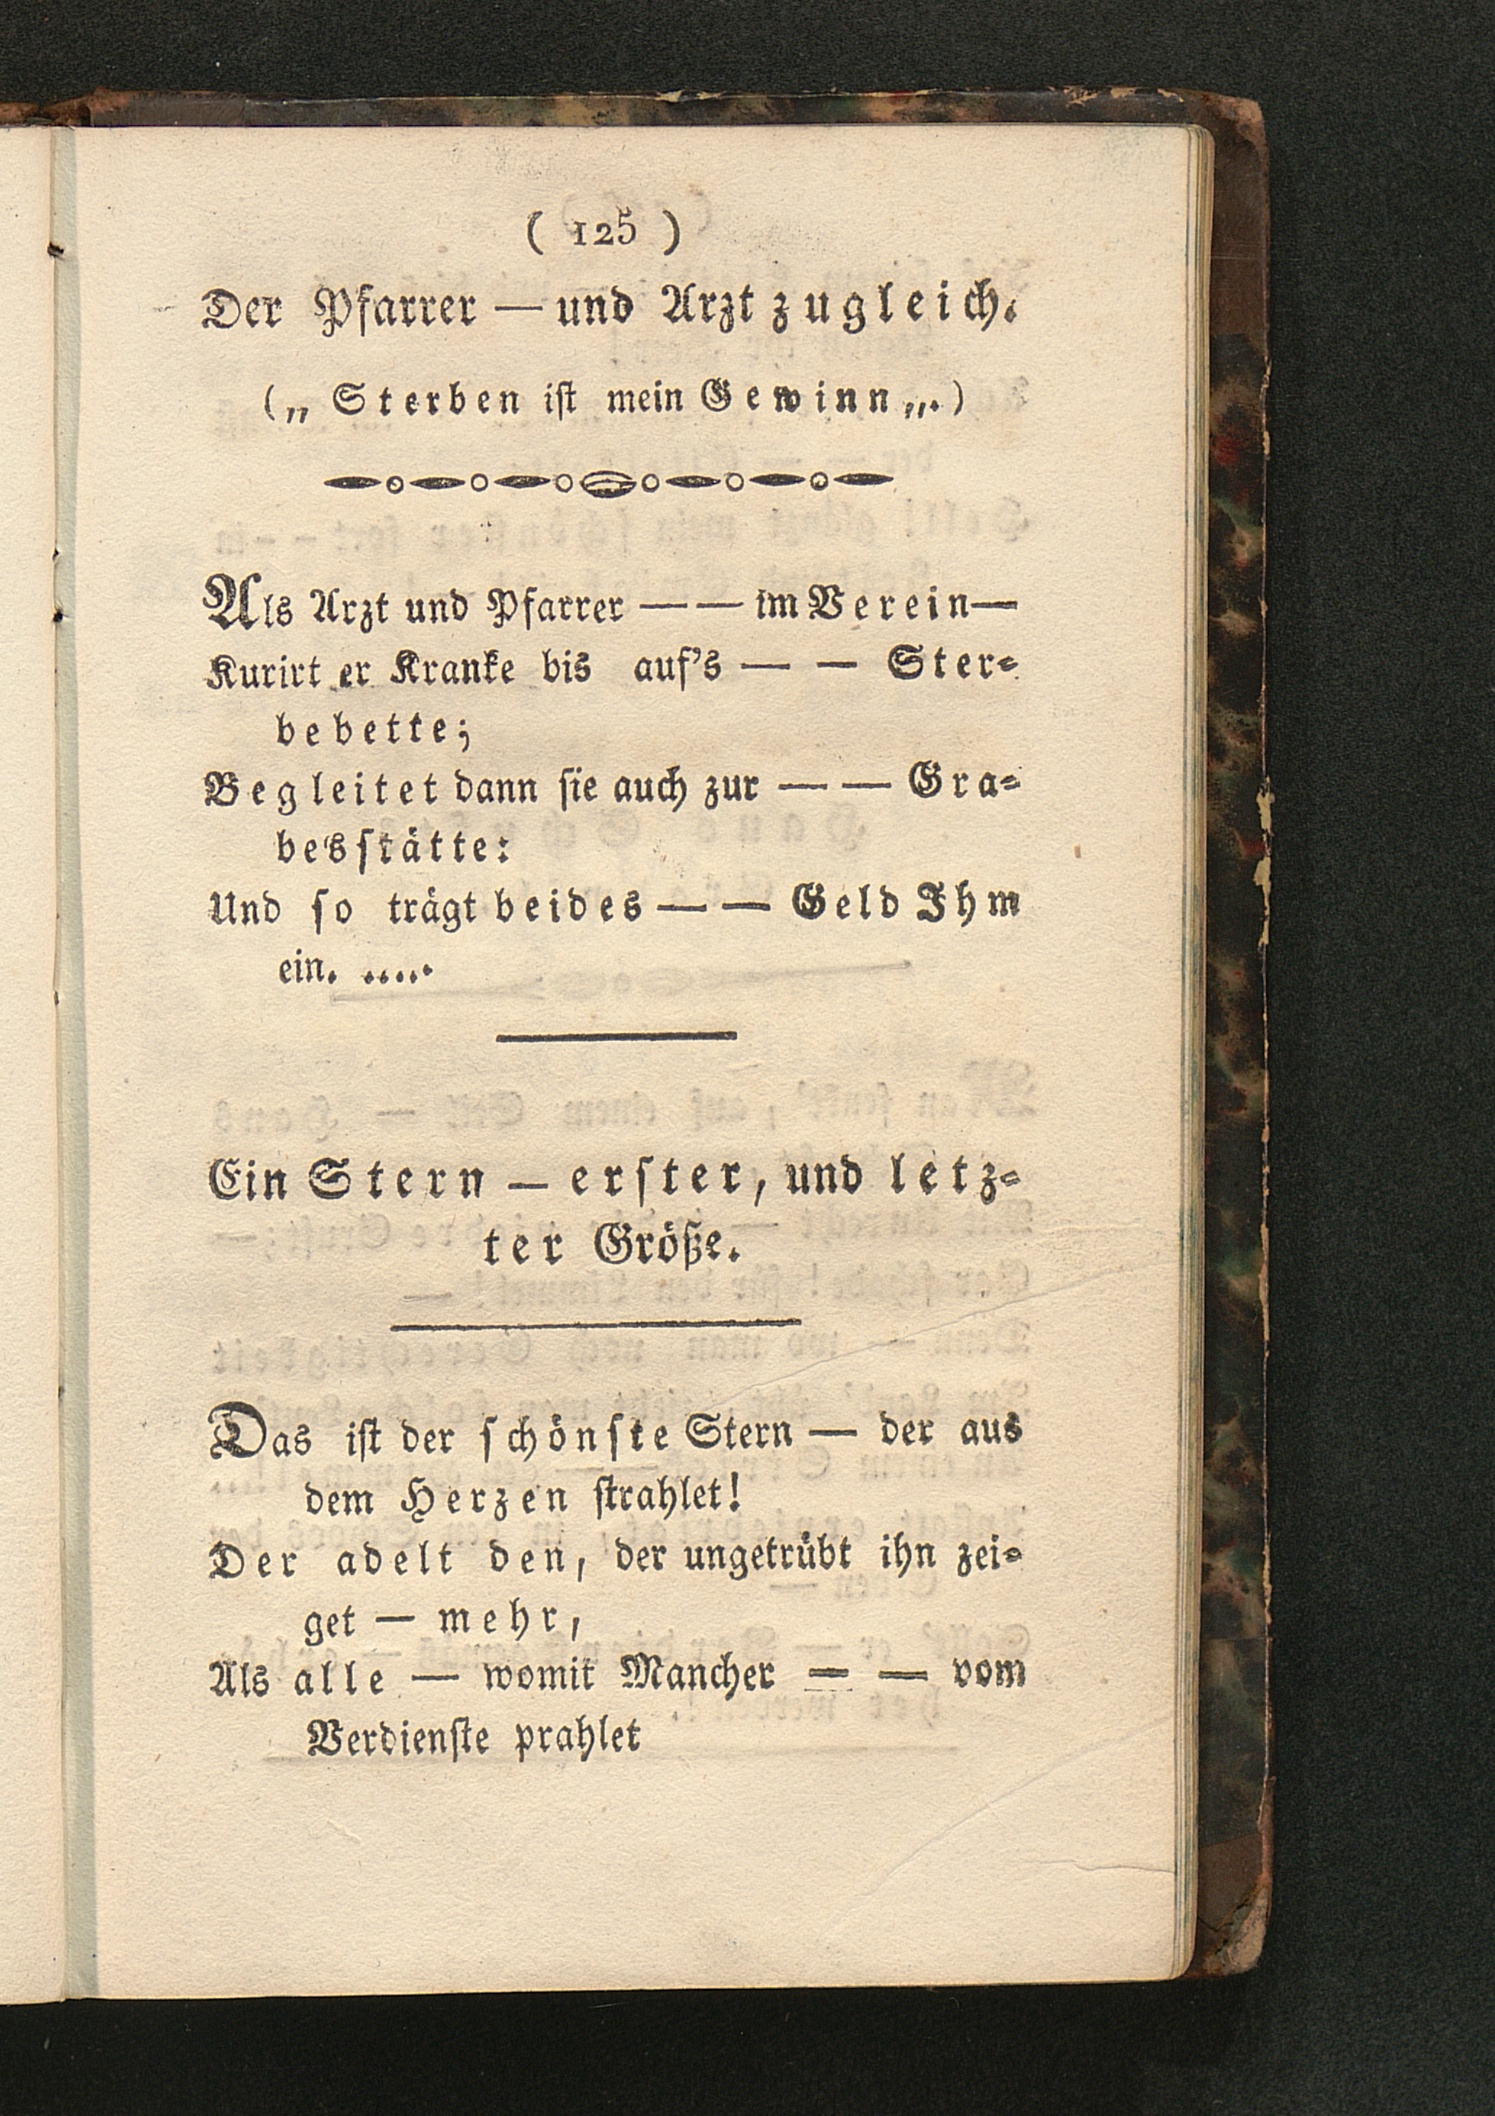 ( 125 )
Der Pfarrer — und Arzt zugleich.
(„ Sterben ist mein Gewinn „.)
Als Arzt und Pfarrer — — im Verein —
Kurirt er Kranke bis auf's — — Ster-
bebette;
Begleitet dann sie auch zur — — Gra-
besstätte:
Und so trägt beides — — Geld Ihm
ein. .....
Ein Stern — erster, und letz-
ter Größe.
Das ist der schönste Stern — der aus
dem Herzen strahlet!
Der adelt den, der ungetrübt ihn zei-
get — mehr,
Als alle — womit Mancher — — vom
Verdienste prahlet